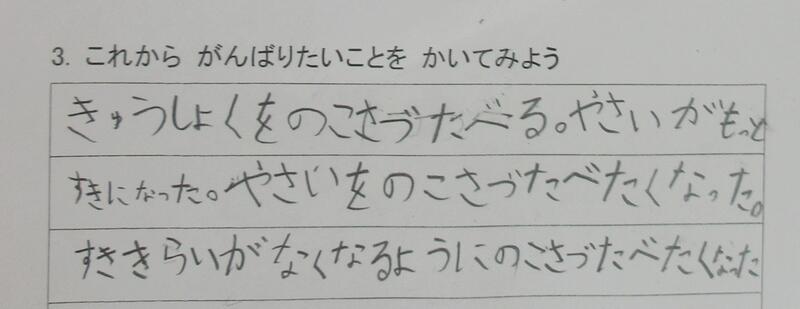 3. これから がんばりたいことを かいてみよう
きゅうしょくをのこさづたべる。やさいがもっと
すきになった。やさいをのこさづたべたくなった。
すききらいがなくなるようにのこさづたべたくなった